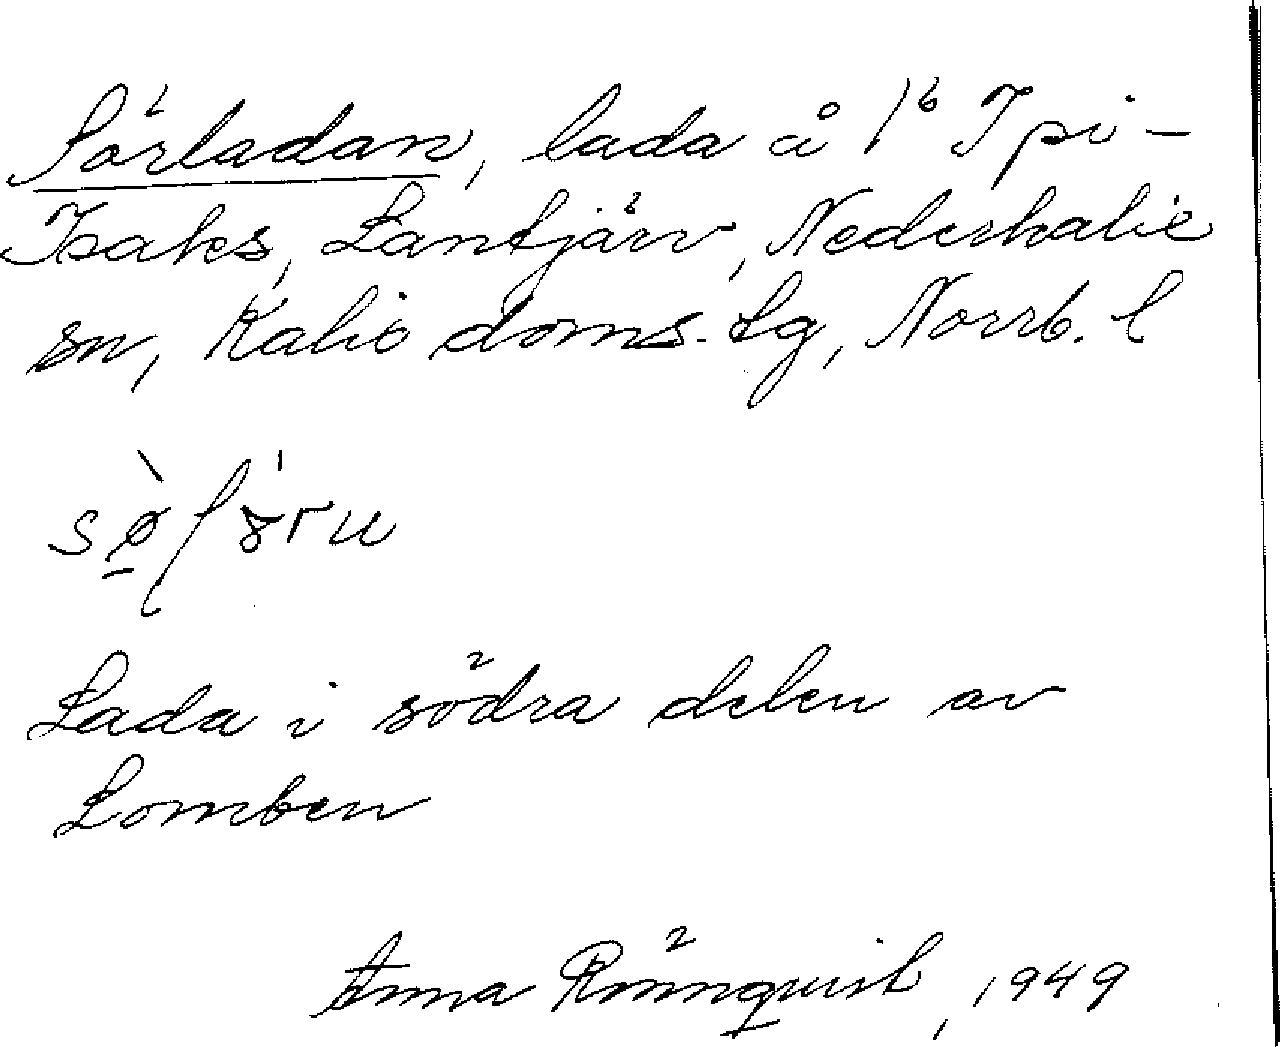 Sörladan, lada å 1⁶ Ipi-
Isaks, Lantjärv, Nederkalix
sn, Kalix doms. tg, Norrb. l
Lada i södra delen av
Lomben
Anna Rönnquist, 1949